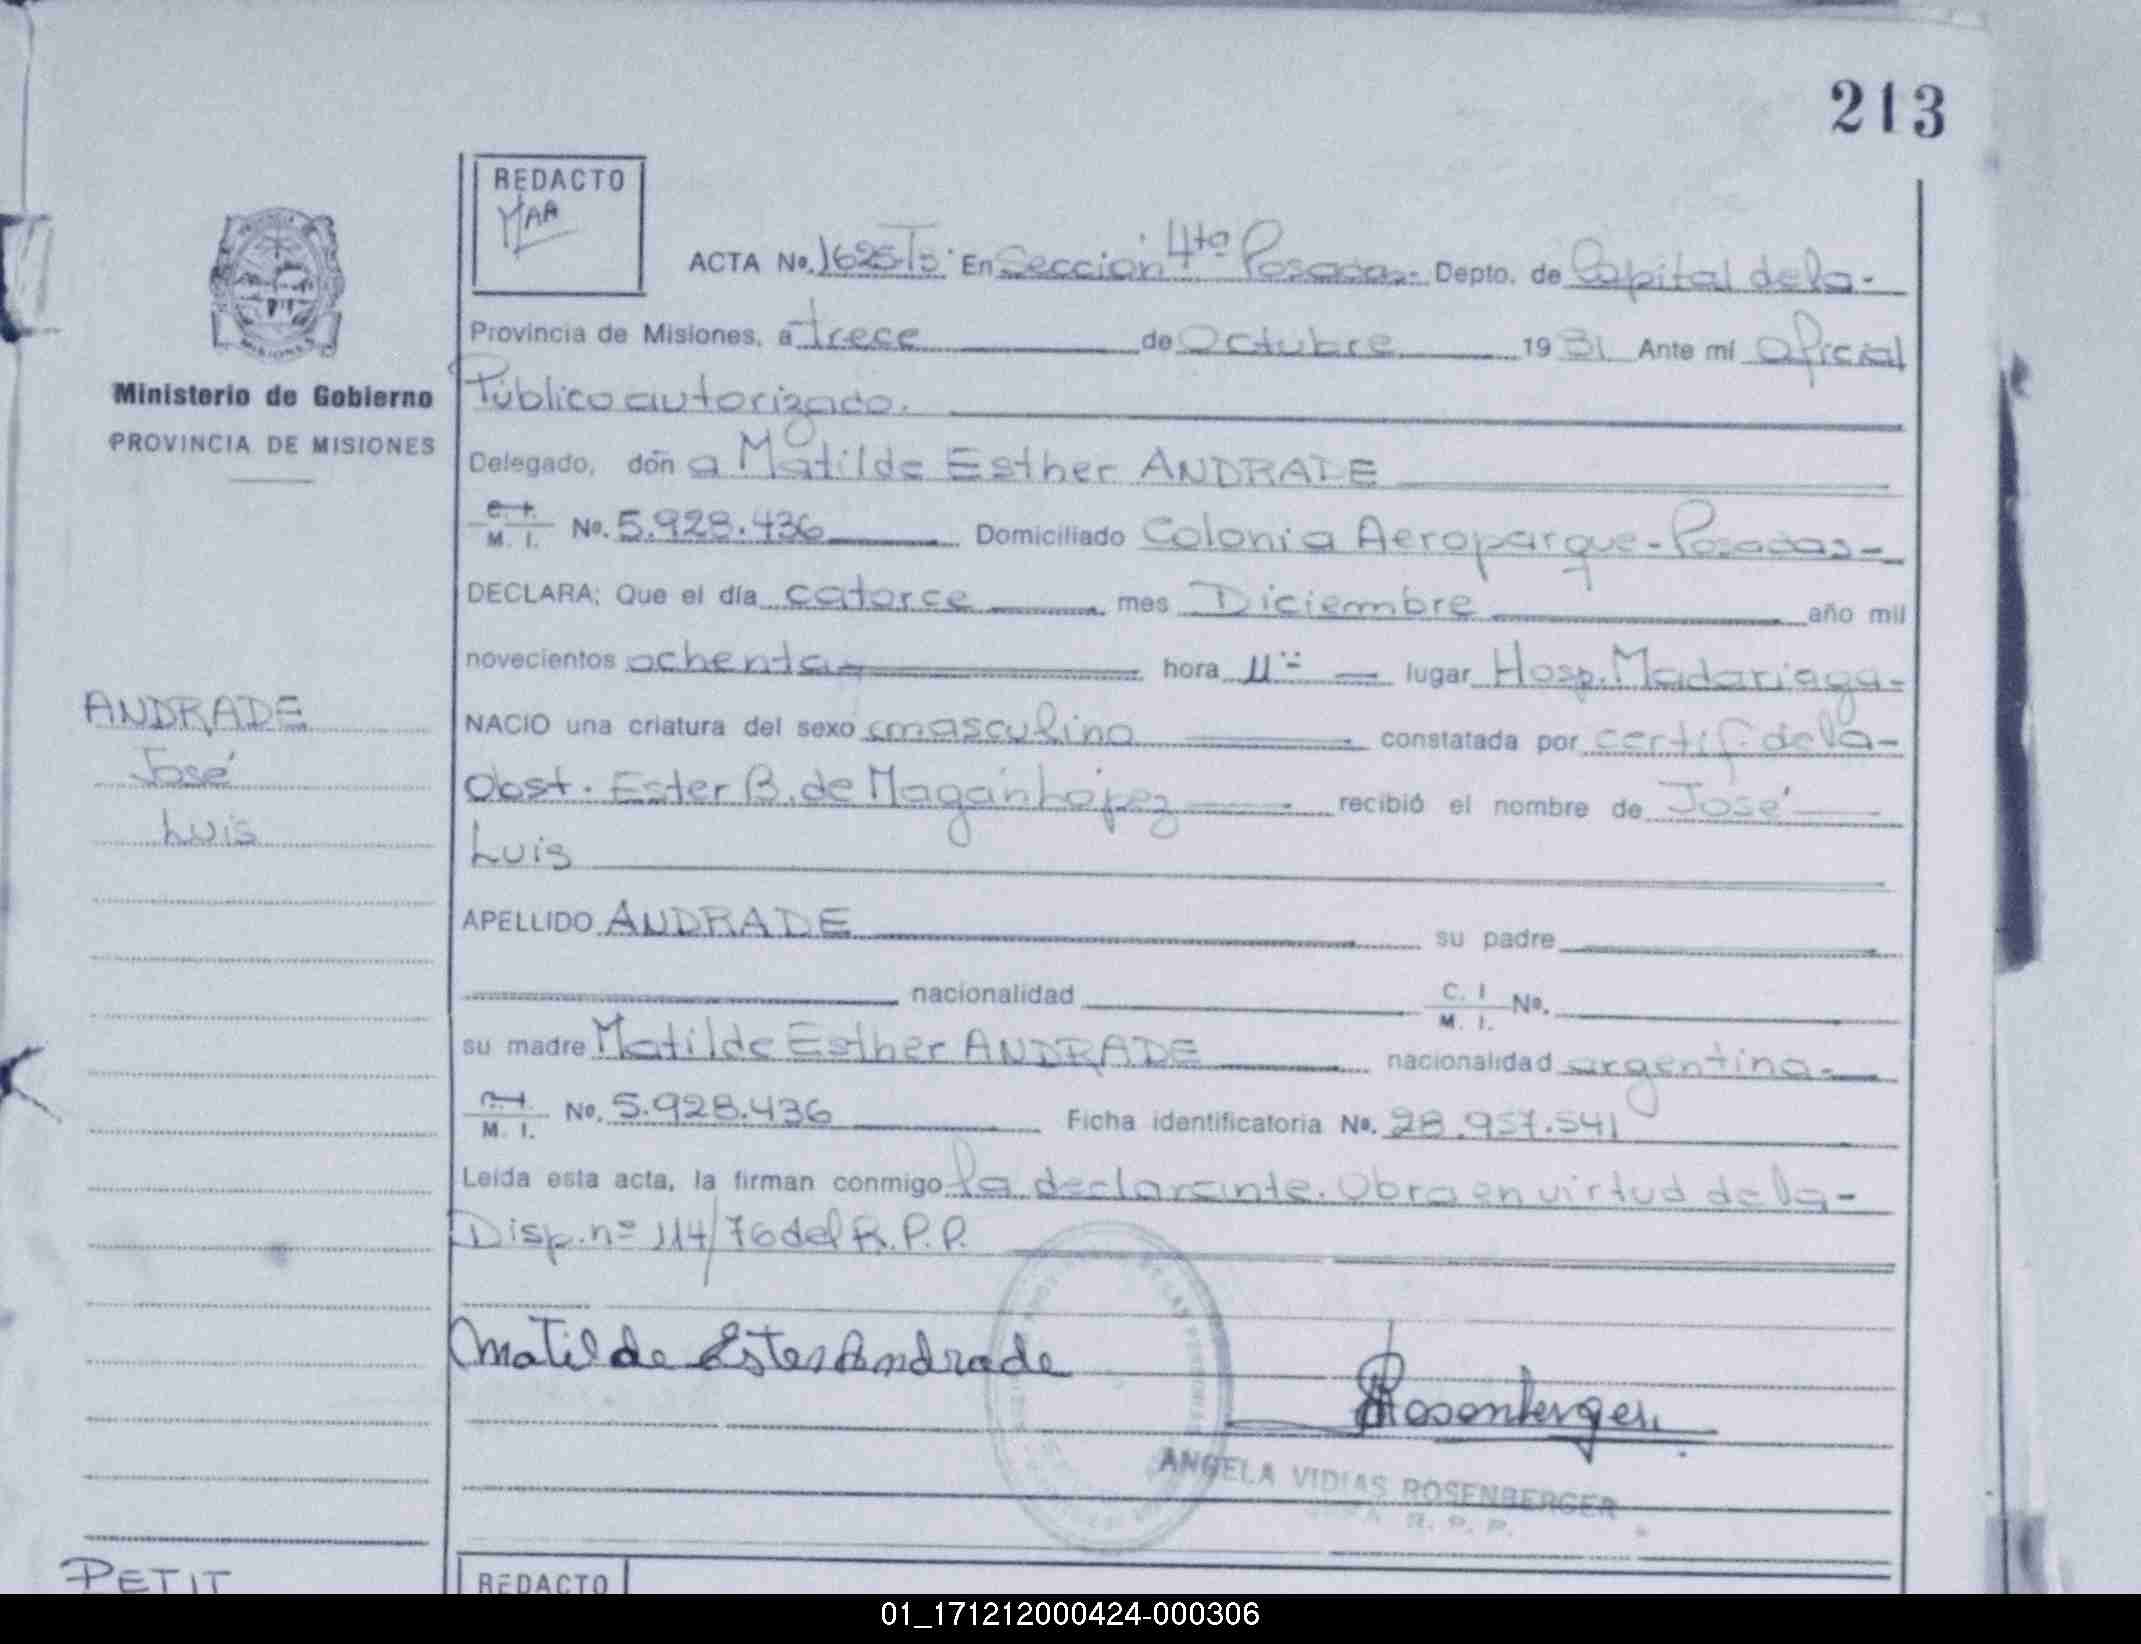 213
REDACTO
MAA
ACTA Nº. 1625 T5. En Sección 4ta Posadas- Depto. de Capital de la-
Provincia de Misiones, a trece de Octubre 19 81 Ante mí Oficial
Público autorizado.
MISIONES
Ministerio de Gobierno
PROVINCIA DE MISIONES
Delegado, don a Matilde Esther ANDRADE
C. I.
M. I. Nº. 5.928.436 Domiciliado Colonia Aeroparque-Posadas-
DECLARA: Que el día catorce mes Diciembre año mil
novecientos ochenta hora 11 lugar Hosp. Madariaga-
NACIO una criatura del sexo masculino constatada por certif. de la-
Obst. Ester B. de Magán López recibió el nombre de José
Luis
APELLIDO ANDRADE su padre
nacionalidad C. I
M. I. Nº.
su madre Matilde Esther ANDRADE nacionalidad argentina-
C. I.
M. I. Nº. 5.928.436 Ficha identificatoria Nº. 28.957.541
Leída esta acta, la firman conmigo la declarante. Obra en virtud de la-
Disp. nº 114/76 del R.P.P.
Matilde Ester Andrade
Rosenberger
ANGELA VIDIAS ROSENBERGER
R. P. P.
ANDRADE
José
Luis
PETIT
REDACTO
01_171212000424-000306